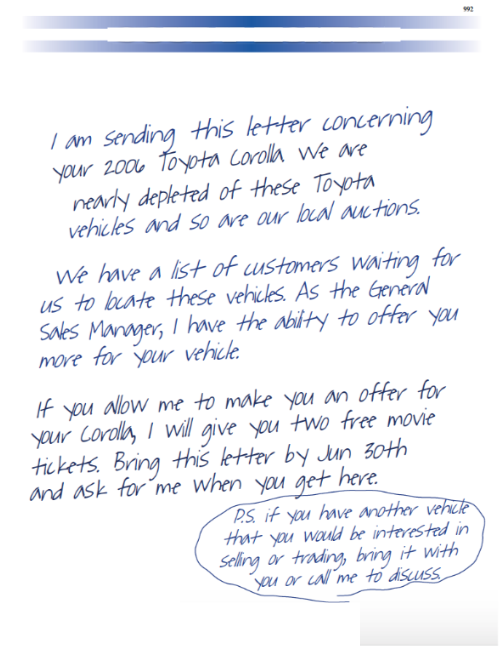 992
I am sending this letter concerning
your 2006 Toyota Corolla We are
nearly depleted of these Toyota
vehicles and so are our local auctions.
We have a list of customers waiting for
us to locate these vehicles. As the General
Sales Manager, I have the ability to offer you
more for your vehicle.
If you allow me to make you an offer for
your Corolla, I will give you two free movie
tickets. Bring this letter by Jun 30th
and ask for me when you get here.
P.S. if you have another vehicle
that you would be interested in
selling or trading, bring it with
you or call me to discuss.